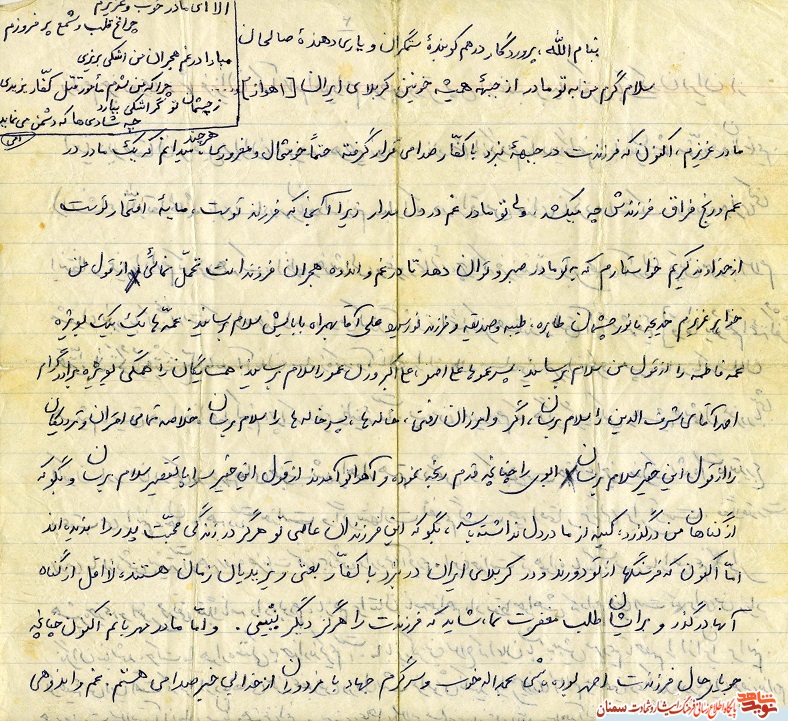 الا ای مادر خوب و عزیزم
چراغ قلب و شمع پر فروزم
مبادا در غم هجران من اشکی بریزی
چرا که من شدم مأمور قتل کفار یزیدی
ز چشمان تو گر اشکی ببارد
چه شادی ها که دشمن می نماید
بنام الله، پروردگار درهم کوبندهٔ ستمگران و یاری دهندهٔ صالحان
سلام گرم من به تو مادر از جبههٔ همیشه خونین کربلای ایران [اهواز]
مادر عزیزم، اکنون که فرزندت در جبههٔ نبرد با کفار صدامی قرار گرفته حتماً خوشحال و مغروری، هر چند میدانم که یک مادر در
غم و رنج فراق فرزندش چه میکشد، ولی تو مادر غم در دل مدار زیرا آنکه فرزند توست، مایهٔ افتخار توست
از خداوند کریم خواستارم که به تو مادر صبر و توان دهد تا در غم و اندوه هجران فرزندانت تحمل نمائی و از قول من
خواهر عزیزم خدیجه با نور چشمان طاهره، طیبه و صدیقه و فرزند علی آقا بهمراه بابایش سلام برسانید. عمه ها تک تک بویژه
عمه فاطمه را از قول من سلام برسانید. پسر عموها علی اصغر، علی اکبر و زن عمو را سلام برسانید. همسایگان را همگی بویژه برادر گرام
آقای شرف الدین را سلام برسان، اگر و امرزان رفتی، خاله ها، پسر خاله ها را سلام برسان. خلاصه تمامی اقوام و نزدیکان
را از قول این حقیر سلام برسان. ابوی را چنانچه قدم رنجه نموده و آمدند از قول این حقیر سراپا تقصیر سلام برسان و بگو که
از گناهان من درگذرد، کینه از ما در دل نداشته باشد، بگو که این فرزندان عاصی تو هرگز در زندگی محبت پدر را ندیده اند
اما اکنون که فرسنگها از تو دورند و در کربلای ایران در نبرد با کفار بعثی و یزیدیان زمان هستند، لااقل از گناه
آنها درگذر و برایشان طلب مغفرت نما، شاید که فرزندت را هرگز دیگر نبینی. و اما مادر مهربانم اکنون چنانچه
جویای حال فرزندت اصغر بوده باشی بحمدالله خوب و سرگرم جهاد با مزدوران از خدا بی خبر صدامی هستم. غم و اندوهی
نوید شاهد
پایگاه اطلاع رسانی فرهنگ ایثار و شهادت سمنان